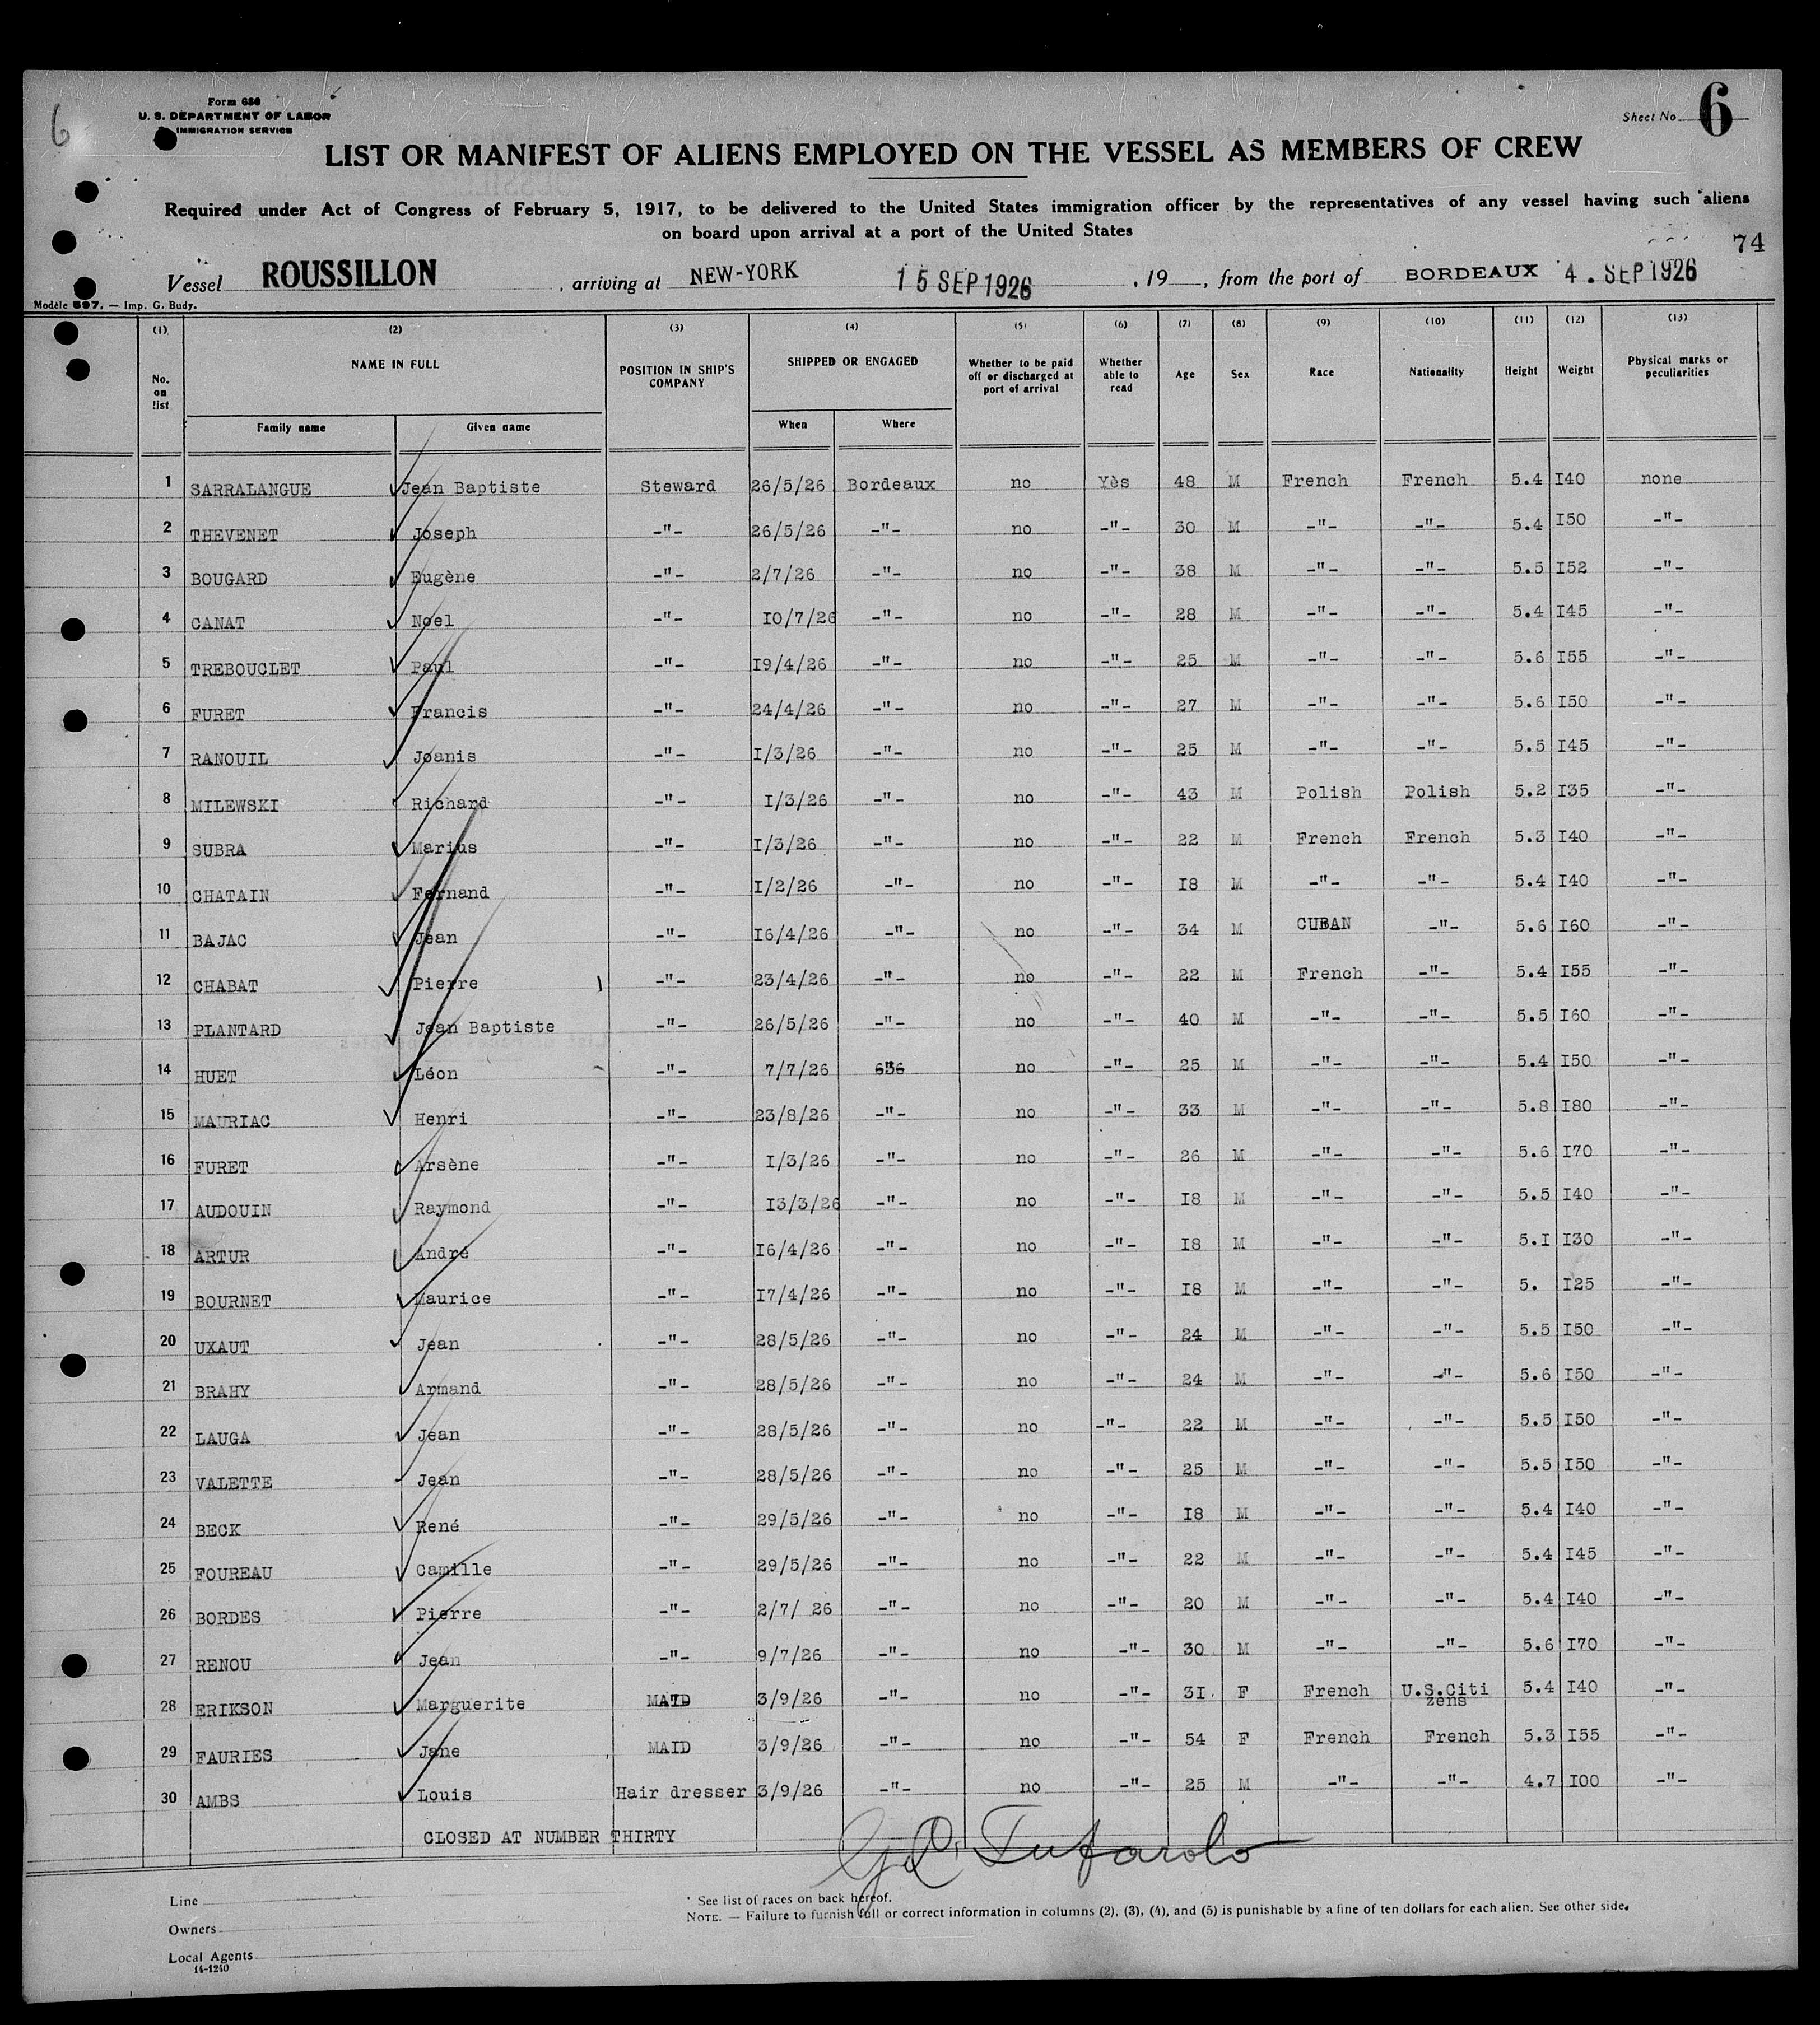 6
Form 686
U. S. DEPARTMENT OF LABOR
IMMIGRATION SERVICE
Sheet No 6
LIST OR MANIFEST OF ALIENS EMPLOYED ON THE VESSEL AS MEMBERS OF CREW
Required under Act of Congress of February 5, 1917, to be delivered to the United States immigration officer by the representatives of any vessel having such aliens
on board upon arrival at a port of the United States
74
Vessel ROUSSILLON , arriving at NEW-YORK 15 SEP 1926 , 19 , from the port of BORDEAUX 4. SEP 1926
Modèle 597. — Imp. G. Budy.
(1) (2) (3) (4) (5) (6) (7) (8) (9) (10) (11) (12) (13)
No. on list NAME IN FULL POSITION IN SHIP'S COMPANY SHIPPED OR ENGAGED Whether to be paid off or discharged at port of arrival Whether able to read Age Sex Race Nationality Height Weight Physical marks or peculiarities
Family name Given name When Where
1 SARRALANGUE Jean Baptiste Steward 26/5/26 Bordeaux no Yès 48 M French French 5.4 I40 none
2 THEVENET Joseph -"- 26/5/26 -"- no -"- 30 M -"- -"- 5.4 I50 -"-
3 BOUGARD Eugène -"- 2/7/26 -"- no -"- 38 M -"- -"- 5.5 I52 -"-
4 CANAT Noel -"- I0/7/26 -"- no -"- 28 M -"- -"- 5.4 I45 -"-
5 TREBOUCLET Paul -"- I9/4/26 -"- no -"- 25 M -"- -"- 5.6 I55 -"-
6 FURET Francis -"- 24/4/26 -"- no -"- 27 M -"- -"- 5.6 I50 -"-
7 RANOUIL Joanis -"- I/3/26 -"- no -"- 25 M -"- -"- 5.5 I45 -"-
8 MILEWSKI Richard -"- I/3/26 -"- no -"- 43 M Polish Polish 5.2 I35 -"-
9 SUBRA Marius -"- I/3/26 -"- no -"- 22 M French French 5.3 I40 -"-
10 CHATAIN Fernand -"- I/2/26 -"- no -"- I8 M -"- -"- 5.4 I40 -"-
11 BAJAC Jean -"- I6/4/26 -"- no -"- 34 M CUBAN -"- 5.6 I60 -"-
12 CHABAT Pierre -"- 23/4/26 -"- no -"- 22 M French -"- 5.4 I55 -"-
13 PLANTARD Jean Baptiste -"- 26/5/26 -"- no -"- 40 M -"- -"- 5.5 I60 -"-
14 HUET Léon -"- 7/7/26 no -"- 25 M -"- -"- 5.4 I50 -"-
15 MAURIAC Henri -"- 23/8/26 -"- no -"- 33 M -"- -"- 5.8 I80 -"-
16 FURET Arsène -"- I/3/26 -"- no -"- 26 M -"- -"- 5.6 I70 -"-
17 AUDOUIN Raymond -"- I3/3/26 -"- no -"- I8 M -"- -"- 5.5 I40 -"-
18 ARTUR André -"- I6/4/26 -"- no -"- I8 M -"- -"- 5.I I30 -"-
19 BOURNET Maurice -"- I7/4/26 -"- no -"- I8 M -"- -"- 5. I25 -"-
20 UXAUT Jean -"- 28/5/26 -"- no -"- 24 M -"- -"- 5.5 I50 -"-
21 BRAHY Armand -"- 28/5/26 -"- no -"- 24 M -"- -"- 5.6 I50 -"-
22 LAUGA Jean -"- 28/5/26 -"- no -"- 22 M -"- -"- 5.5 I50 -"-
23 VALETTE Jean -"- 28/5/26 -"- no -"- 25 M -"- -"- 5.5 I50 -"-
24 BECK René -"- 29/5/26 -"- no -"- I8 M -"- -"- 5.4 I40 -"-
25 FOUREAU Camille -"- 29/5/26 -"- no -"- 22 M -"- -"- 5.4 I45 -"-
26 BORDES Pierre -"- 2/7/ 26 -"- no -"- 20 M -"- -"- 5.4 I40 -"-
27 RENOU Jean -"- 9/7/26 -"- no -"- 30 M -"- -"- 5.6 I70 -"-
28 ERIKSON Marguerite MAID 3/9/26 -"- no -"- 3I. F French U.S.Citi zens 5.4 I40 -"-
29 FAURIES Jane MAID 3/9/26 -"- no -"- 54 F French French 5.3 I55 -"-
30 AMBS Louis Hair dresser 3/9/26 -"- no -"- 25 M -"- -"- 4.7 I00 -"-
CLOSED AT NUMBER THIRTY
Line
* See list of races on back hereof.
Owners
NOTE. — Failure to furnish full or correct information in columns (2), (3), (4), and (5) is punishable by a fine of ten dollars for each alien. See other side.
Local Agents
14-1240